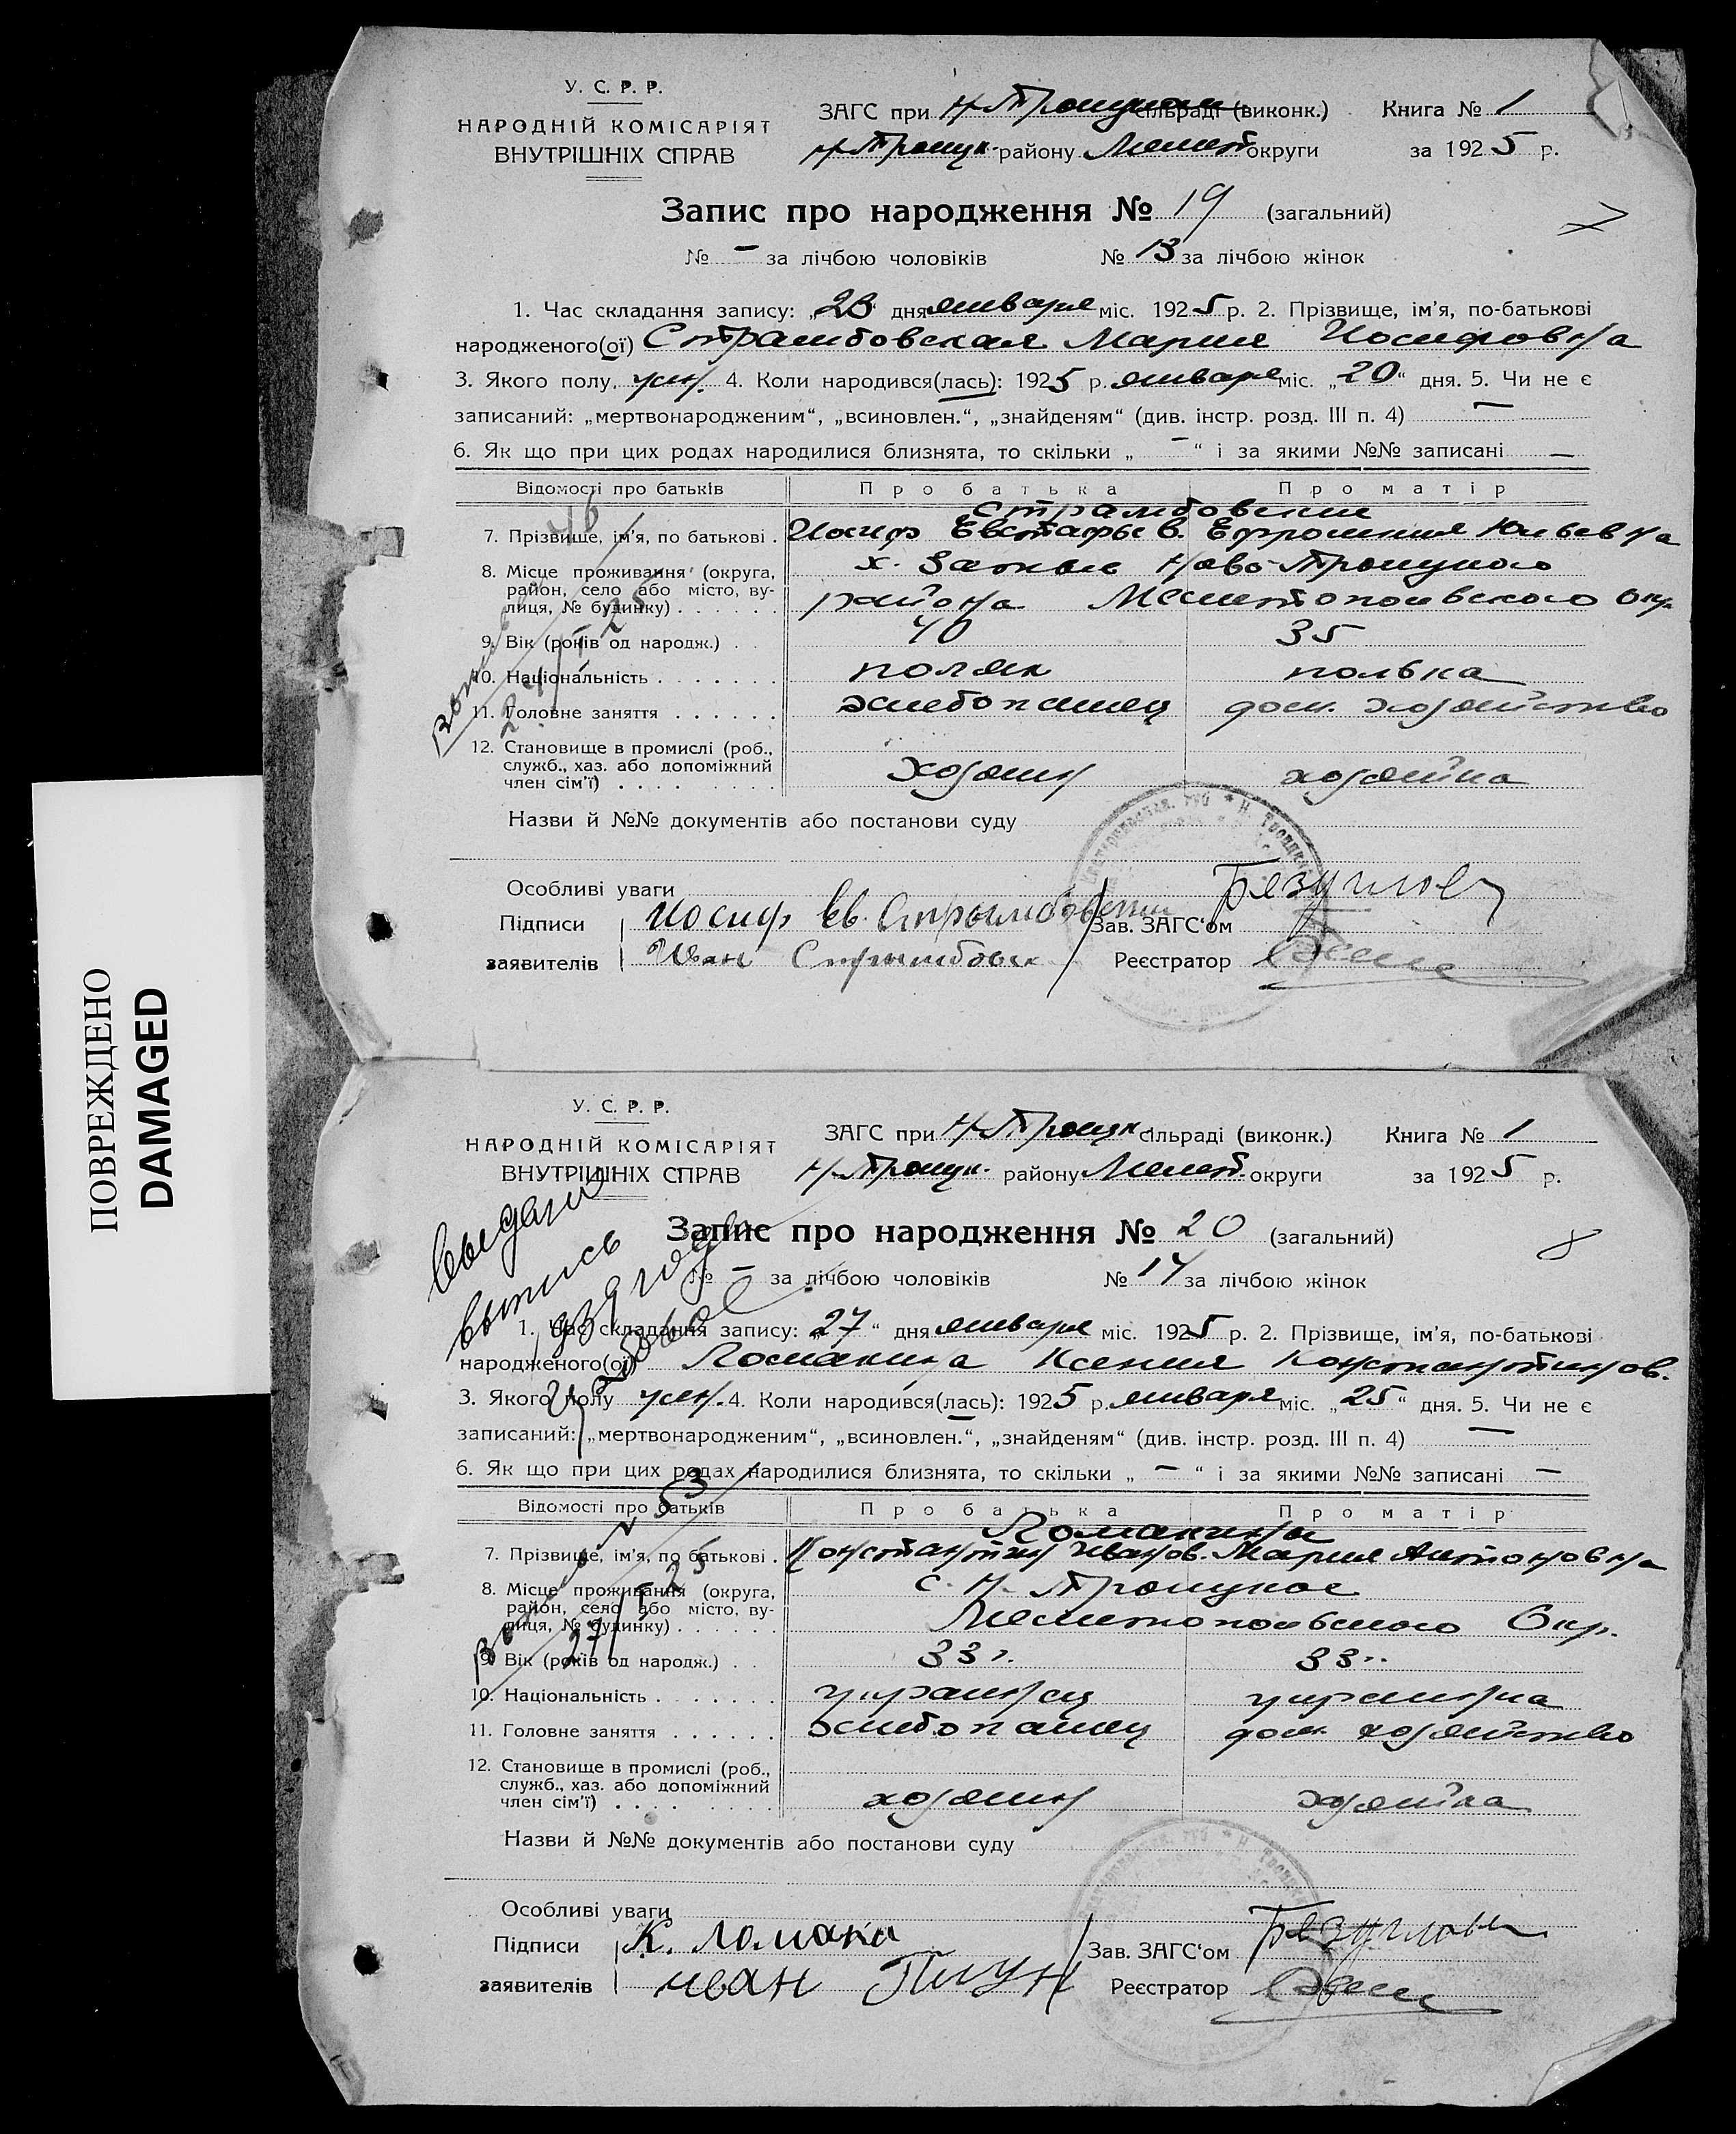 ПОВРЕЖДЕНО
DAMAGED
У. С. Р. Р.
НАРОДНІЙ КОМІСАРІЯТ
ВНУТРІШНІХ СПРАВ
ЗАГС при Н-Троицком сільраді (виконк.) Книга № 1
Н-Троицк. району Мелит. округи за 1925 р.
Запис про народження № 19 (загальний)
№ – за лічбою чоловіків № 13 за лічбою жінок
1. Час складання запису: „23“ дня января міс. 1925 р. 2. Прізвище, ім'я, по-батькові
народженого(ої) Страмбовская Мария Иосифовна
3. Якого полу. жен. 4. Коли народився(лась): 1925 р. января міс. „20“ дня. 5. Чи не є
записаний: „мертвонародженим“, „всиновлен.“, „знайденям“ (див. інстр. розд. III п. 4) —
6. Як що при цих родах народилися близнята, то скільки „ – “ і за якими №№ записані —
Відомості про батьків Про батька Про матір
Страмбовские
7. Прізвище, ім'я, по батькові . Иосиф Евстафьев. Ефросиния Юльевна
8. Місце проживання (округа, х. Затыле Ново-Троицкого
район, село або місто, ву-
лиця, № будинку) . . . . . . района Мелитопольского Окр.
9. Вік (років од народж.) . . 40 35
10. Національність . . . . . . . поляк полька
11. Головне заняття . . . . . . хлебопашец дом. хозяйство
12. Становище в промислі (роб.,
служб., хаз. або допоміжний
член сім'ї) . . . . . . . . хозяин хозяйка
Назви й №№ документів або постанови суду
Особливі уваги
Підписи Иосиф Ев. Стрымбовский Зав. ЗАГС'ом
заявителів Иван Стрымбовск Реєстратор
У. С. Р. Р.
НАРОДНІЙ КОМІСАРІЯТ
ВНУТРІШНІХ СПРАВ
ЗАГС при Н-Троицк сільраді (виконк.) Книга № 1
Н-Троицк. району Мелит. округи за 1925 р.
Выдано
выпись
1939 год
Запис про народження № 20 (загальний)
№ – за лічбою чоловіків № 14 за лічбою жінок
1. Час складання запису: „27“ дня января міс. 1925 р. 2. Прізвище, ім'я, по-батькові
народженого(ої) Ломакина Ксения Константинов.
3. Якого полу жен. 4. Коли народився(лась): 1925 р. января міс. „25“ дня. 5. Чи не є
записаний: „мертвонародженим“, „всиновлен.“, „знайденям“ (див. інстр. розд. III п. 4) —
6. Як що при цих родах народилися близнята, то скільки „ – “ і за якими №№ записані –
Відомості про батьків Про батька Про матір
Ломакины
7. Прізвище, ім'я, по батькові . Константин Иванов. Мария Антоновна
8. Місце проживання (округа, с. Н. Троицкое
район, село або місто, ву-
лиця, № будинку) . . . . . . Мелитопольского Окр.
9. Вік (років од народж.) . . 33 г. 33 г.
10. Національність . . . . . . . украинец украинка
11. Головне заняття . . . . . . хлебопашец дом. хозяйство
12. Становище в промислі (роб.,
служб., хаз. або допоміжний
член сім'ї) . . . . . . . . хозяин хозяйка
Назви й №№ документів або постанови суду
Особливі уваги
Підписи К. Ломака Зав. ЗАГС'ом
заявителів иван Реєстратор